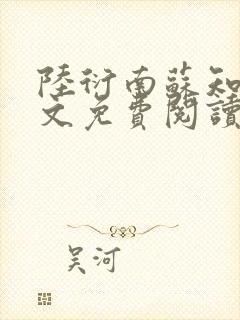 陸衍南蘇知
文免費閱讀
吴河